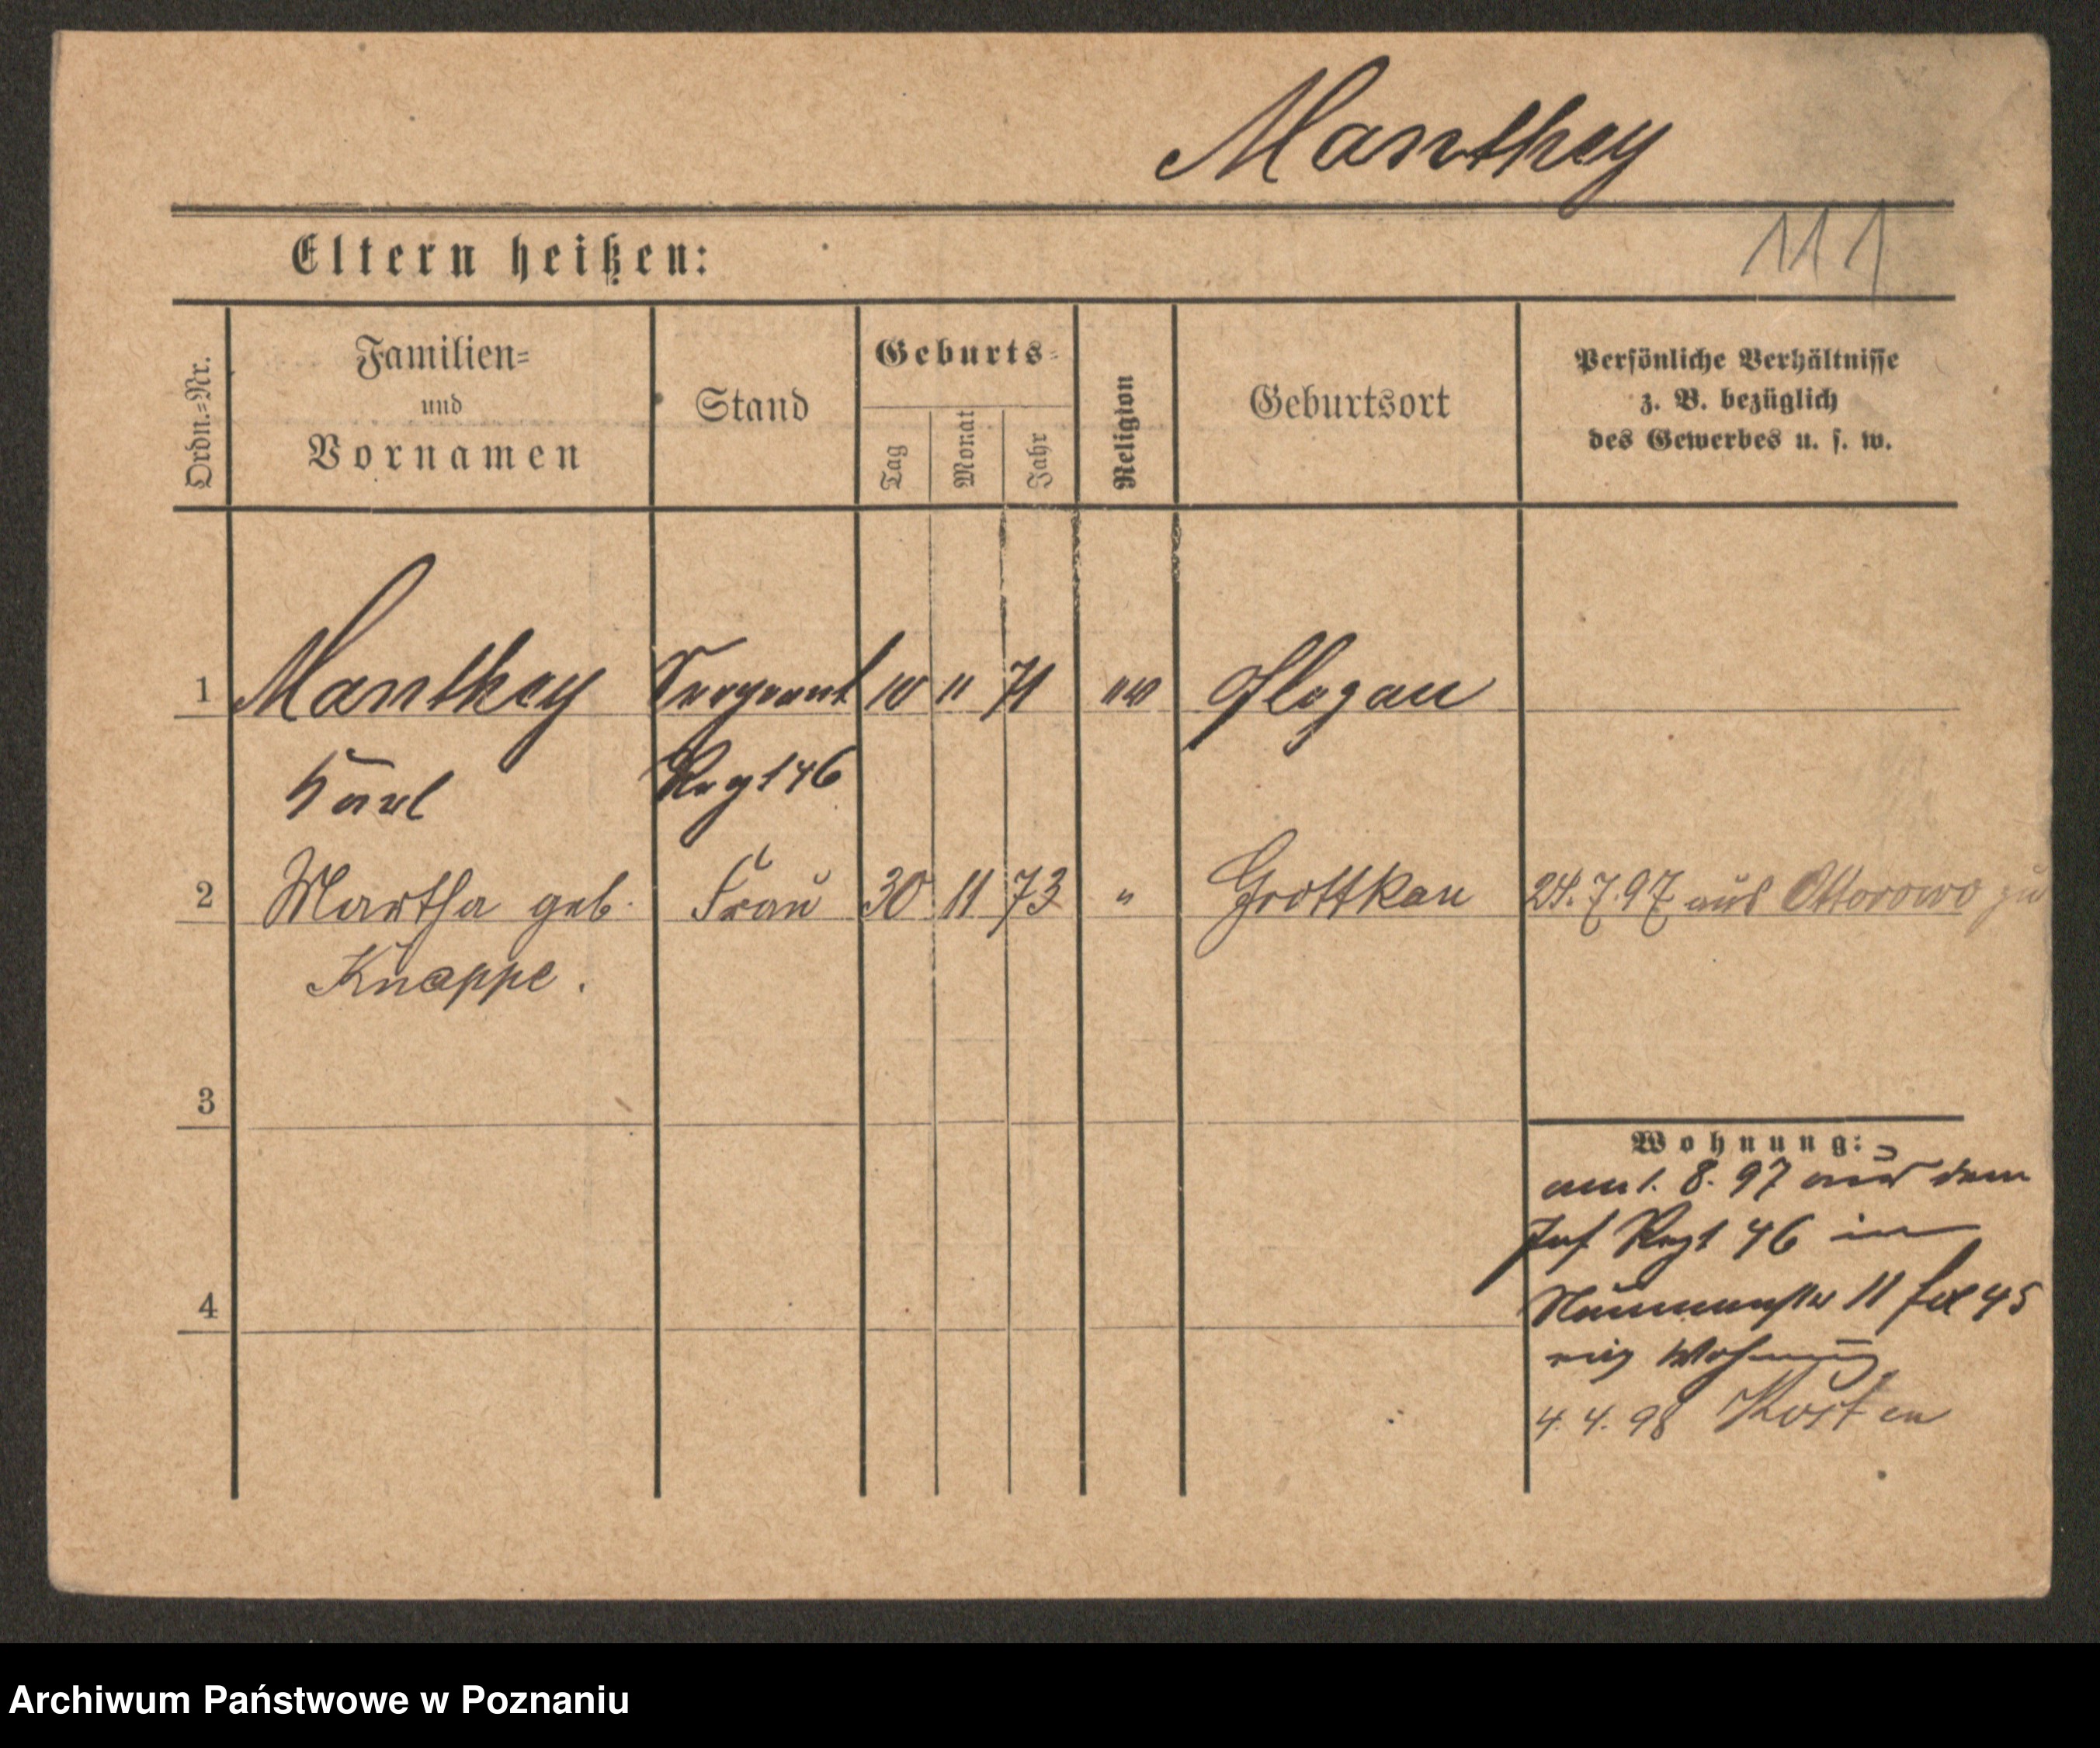 Manthey
Eltern heißen:
111
Ordn.=Nr.
Familien=
und
Vornamen
Stand
Geburts=
Tag
Monat
Jahr
Religion
Geburtsort
Persönliche Verhältnisse
z. B. bezüglich
des Gewerbes u. s. w.
1 Manthey Sergeant 10 11 71 ev Glogau
Karl Regt 46
2 Martha geb. Frau 30 11 73 " Grottkau 24.7.97 aus Ottorowo zu
Knappe.
3
Wohnung:
am 1. 8. 97 aus dem
Inf Regt 46 in
4
Naumannstr 11 45
Wohnung
4. 4. 98 Kosten
Archiwum Państwowe w Poznaniu